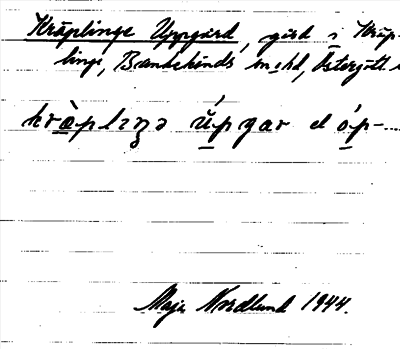 Kräplinge Uppgård, gård i Kräp-
linge, Bankekinds m o hd, Östergötl.
kràplɪŋə úpgar el óp-...
Maja Nordlund 1944.